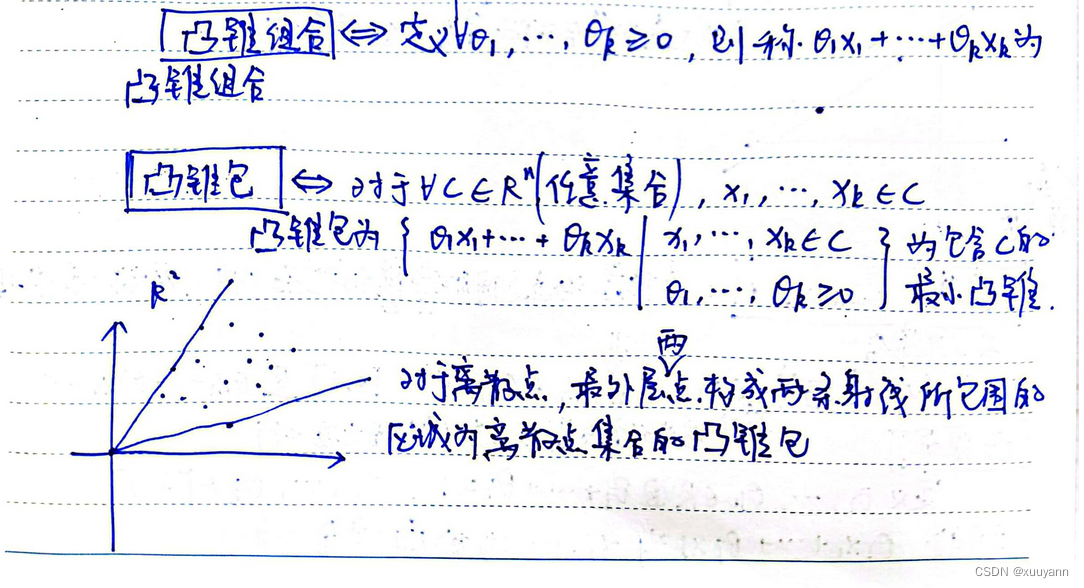 凸锥组合 ⇔ 定义∀θ₁, ⋯, θₖ ≥ 0, 则称 θ₁x₁+⋯+θₖxₖ为
凸锥组合
凸锥包 ⇔ 对于∀C∈Rⁿ(任意集合), x₁, ⋯, xₖ∈C
凸锥包为 { θ₁x₁+⋯+θₖxₖ | x₁, ⋯, xₖ∈C } 为包含C的
θ₁, ⋯, θₖ≥0 最小凸锥.
R²
两
对于离散点, 最外层点构成两条射线所包围的
区域为离散点集合的凸锥包
CSDN @xuuyann